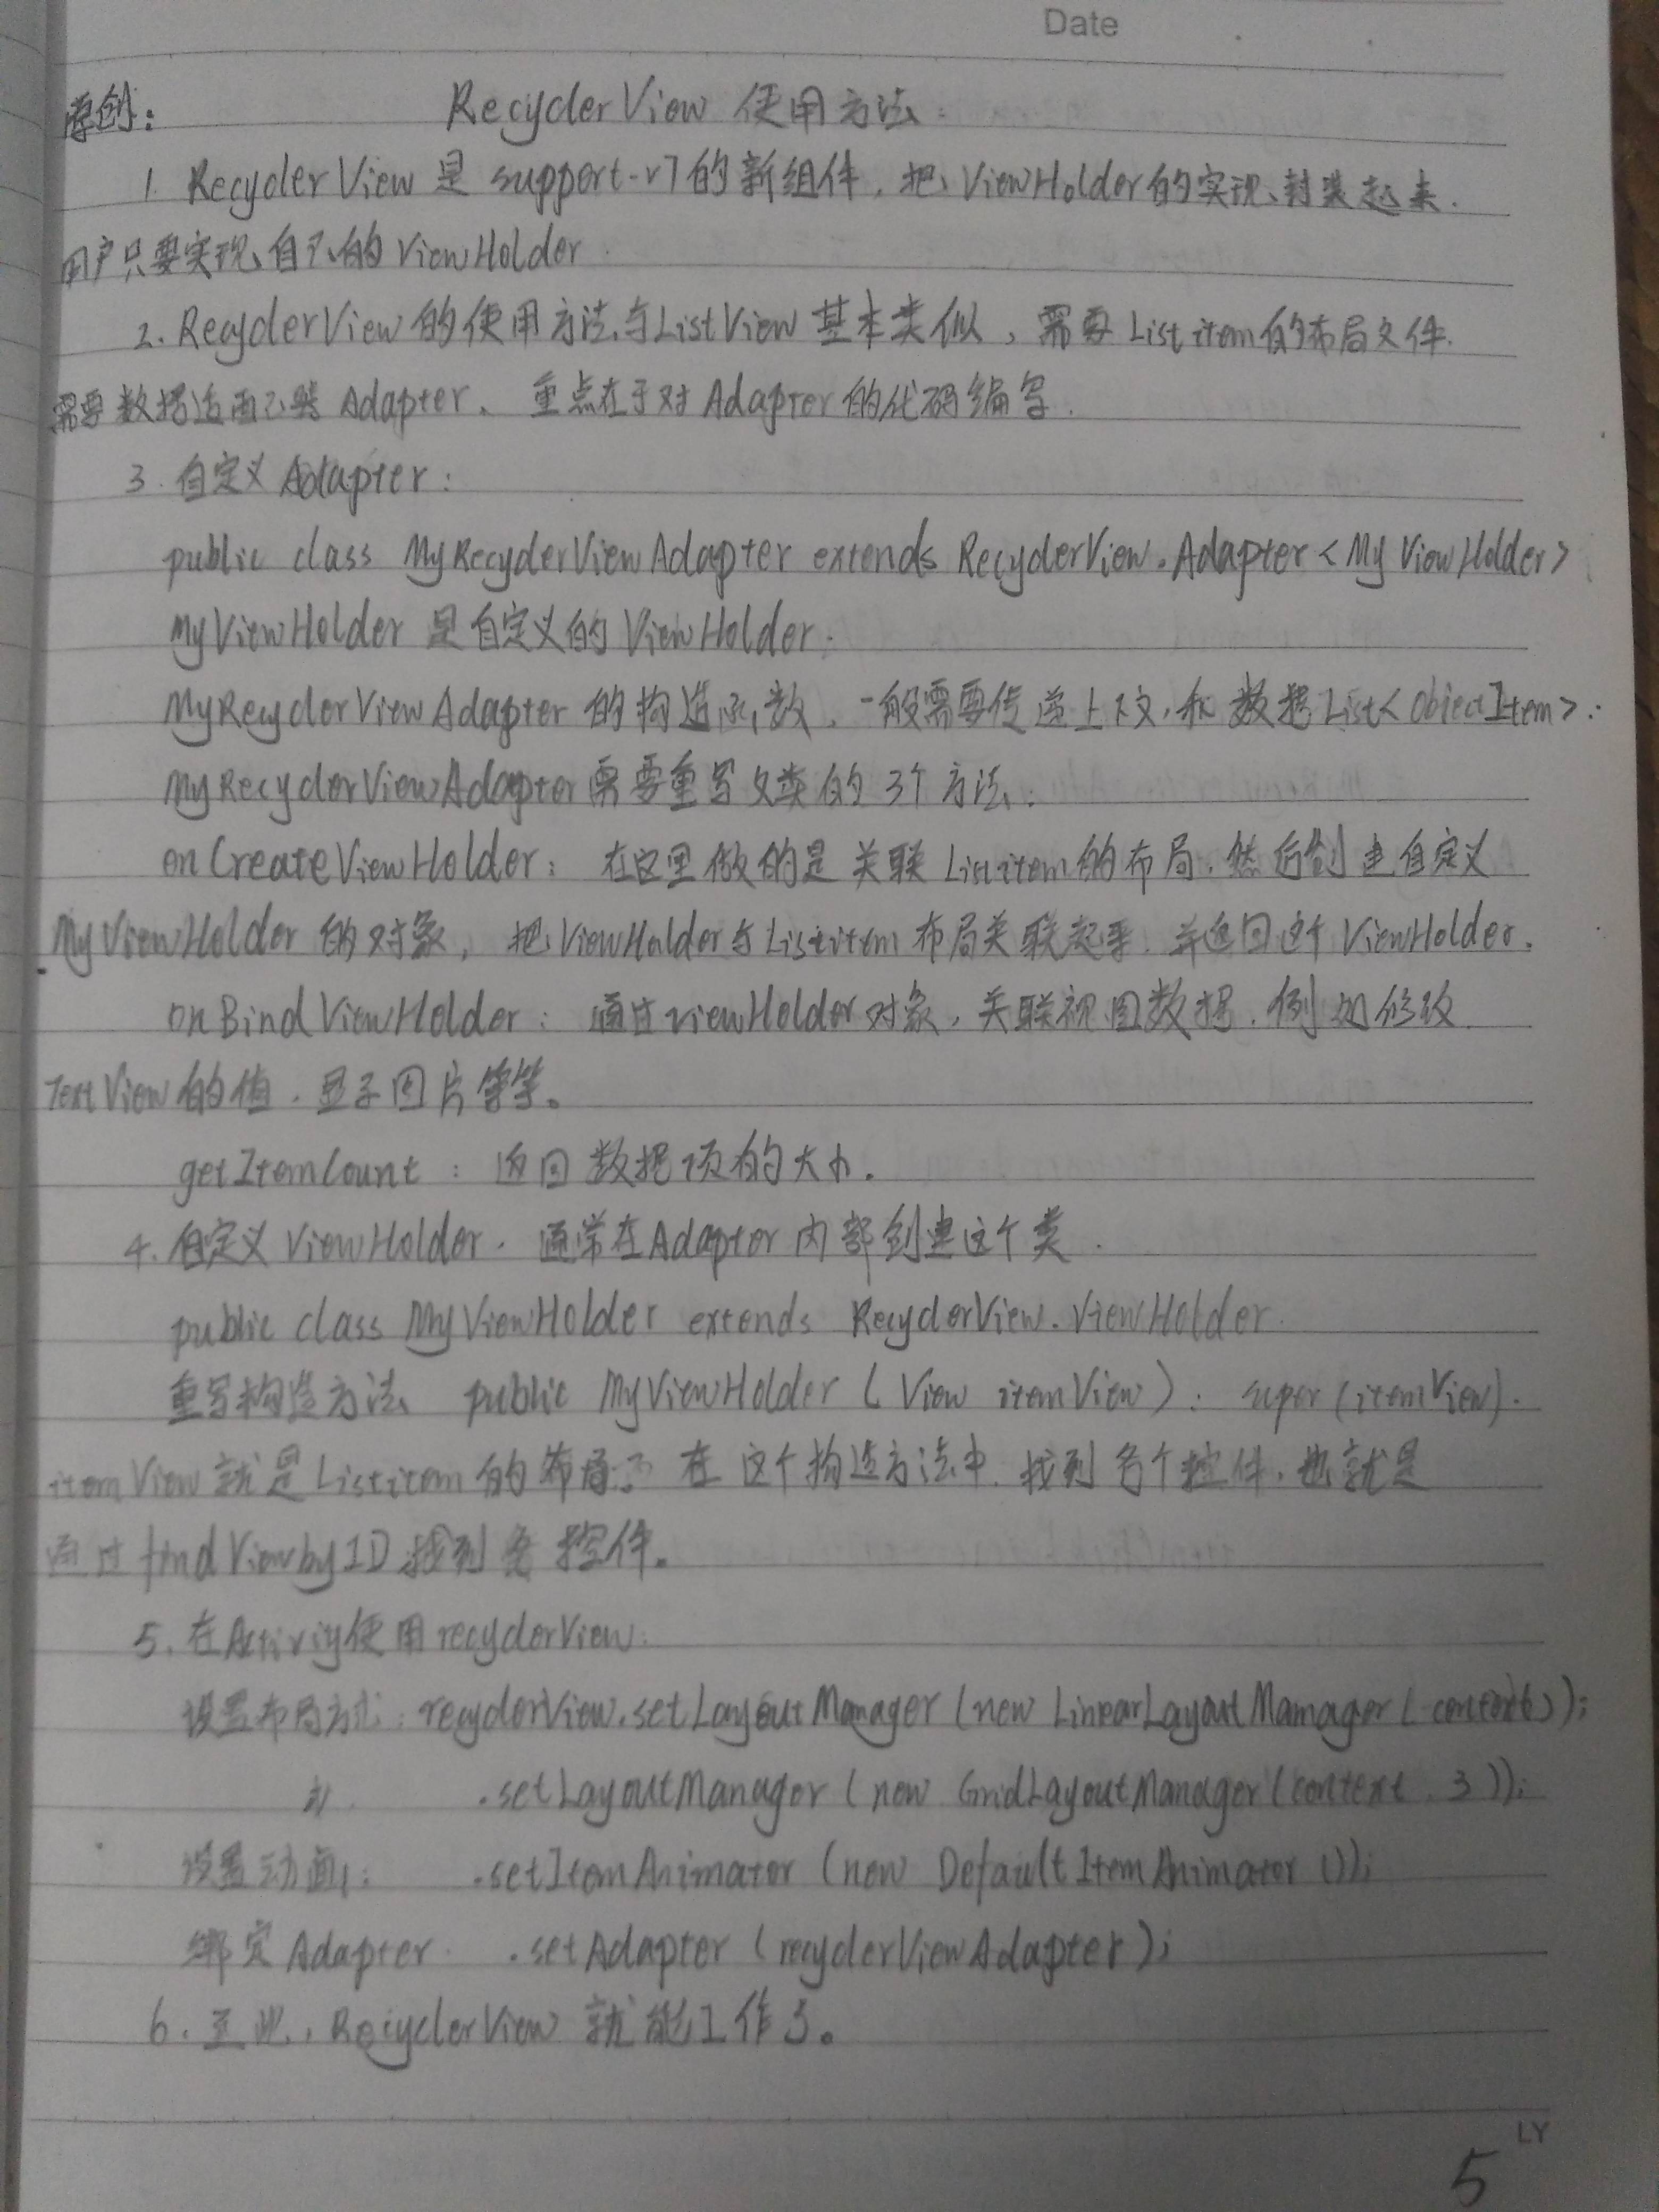 Date
原创:
RecyclerView 使用方法:
1. RecyclerView 是 support-v7的新组件,把ViewHolder的实现封装起来.
用户只要实现自己的ViewHolder.
2. RecyclerView的使用方法与ListView 基本类似,需要 List item的布局文件.
需要数据适配器 Adapter、重点在于对 Adapter 的代码编写.
3. 自定义 Adapter:
public class MyRecyclerViewAdapter extends RecyclerView.Adapter<MyViewHolder>
MyViewHolder 是自定义的 ViewHolder.
MyRecyclerViewAdapter 的构造函数,一般需要传递上下文,和数据List<ObjectItem>.
MyRecyclerViewAdapter需要重写父类的 3个方法:
onCreateViewHolder: 在这里做的是关联 Listitem的布局,然后创建自定义
MyViewHolder 的对象,把ViewHolder与Listitem 布局关联起来.并返回这个 ViewHolder.
onBindViewHolder: 通过viewHolder对象,关联视图数据.例如修改
TextView的值.显示图片等等。
getItemCount: 返回数据项的大小.
4. 自定义 ViewHolder. 通常在Adapter 内部创建这个类.
public class MyViewHolder extends RecyclerView.ViewHolder.
重写构造方法 public MyViewHolder (View itemView): super(itemView).
itemView就是Listitem的布局了 在这个构造方法中.找到各个控件.也就是
通过findViewbyID找到各控件。
5. 在Activiy使用recyclerView:
设置布局方式: recyclerView.setLayoutManager(new LinearLayoutManager(context));
.setLayoutManager(new GridLayoutManager(context, 3));
设置动画: .setItemAnimator(new DefaultItemAnimator());
绑定 Adapter .setAdapter(recyclerViewAdapter);
6. 至此,RecyclerView 就能工作了。
LY
5